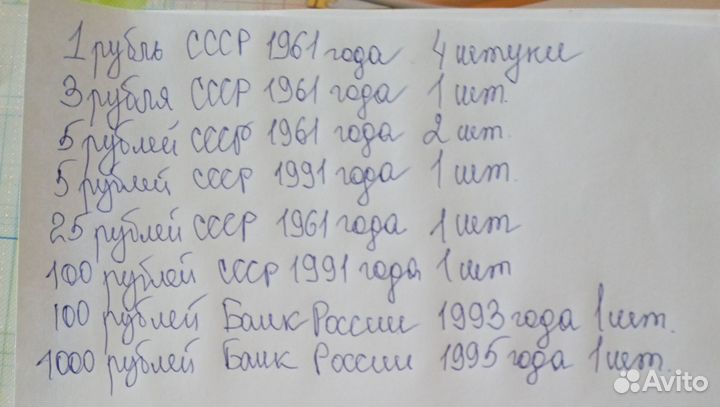 1 рубль СССР 1961 года 4 штуки
3 рубля СССР 1961 года 1 шт.
5 рублей СССР 1961 года 2 шт.
5 рублей СССР 1991 года 1 шт.
25 рублей СССР 1961 года 1 шт
100 рублей СССР 1991 года 1 шт
100 рублей Банк России 1993 года 1 шт.
1000 рублей Банк России 1995 года 1 шт.
Avito